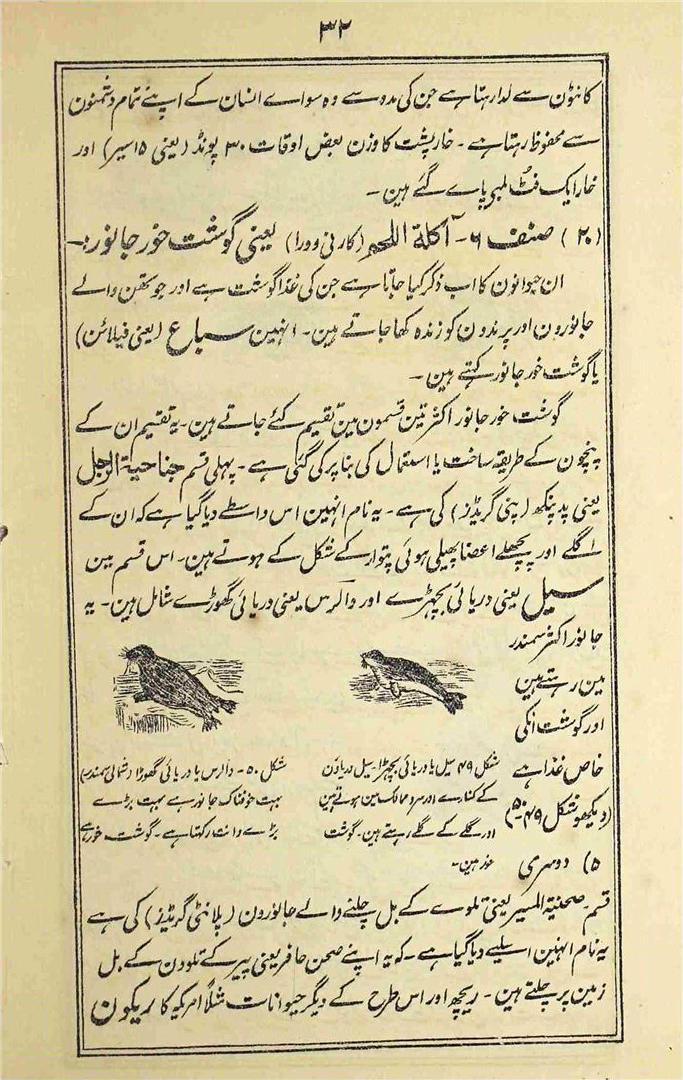 ۳۲
کانٹون سے لدا رہتا ہے جن کی مدد سے وہ سواے انسان کے اپنے تمام دشمنون
سے محفوظ رہتا ہے ۔ خارپشت کا وزن بعض اوقات ۳۰ پونڈ (یعنی ۱۵ سیر) اور
خار ایک فٹ لمبے پاے گئے ہین ۔
(۲۰) صنف ۶ ۔ آکلۃ اللحم (کارنی وورا) یعنی گوشت خور جانور :۔
ان حیوانون کا اب ذکر کیا جاتا ہے جن کی غذا گوشت ہے اور جو تھن والے
جانورون اور پرندون کو زندہ کھا جاتے ہین ۔ انہین سباع (یعنی فیلائن)
یا گوشت خور جانور کہتے ہین ۔
گوشت خور جانور اکثر تین قسمون مین تقسیم کئے جاتے ہین ۔ یہ تقسیم ان کے
پنچون کے طریقہ ساخت یا استعمال کی بنا پر کی گئی ہے ۔ پہلی قسم جناحیۃ الرجل
یعنی پد پنکھ (پنی گریڈز) کی ہے ۔ یہ نام انہین اس واسطے دیا گیا ہے کہ ان کے
اگلے اور پچھلے اعضا پھیلی ہوئی پتوار کے شکل کے ہوتے ہین ۔ اس قسم مین
سیل یعنی دریائی بچھڑے اور والرس یعنی دریائی گھوڑے شامل ہین ۔ یہ
جانور اکثر سمندر
مین رہتے ہین
اور گوشت انکی
خاص غذا ہے
(دیکھو شکل ۴۹ ۔ ۵۰)
شکل ۴۹ سیل یا دریائی بچھڑا۔ سیل دریاؤن
کے کنارے اور سرد ممالک مین ہوتے ہین
اور گلے کے گلے رہتے ہین ۔ گوشت
خور ہین ۔
شکل ۵۰ ۔ والرس یا دریائی گھوڑا (شمالی سمندر)
بہت خوفناک جانور ہے بہت بڑے
بڑے دانت رکھتا ہے ۔ گوشت خور ہے
۵) دوسری
قسم صحنیۃ المسیر یعنی تلوے کے بل چلنے والے جانورون (پلانٹی گریڈز) کی ہے
یہ نام انہین اسلیے دیا گیا ہے ۔ کہ یہ اپنے صحن حافر یعنی پیر کے تلوون کے بل
زمین پر چلتے ہین ۔ ریچھ اور اس طرح کے دیگر حیوانات مثلاً امریکہ کا ریکون